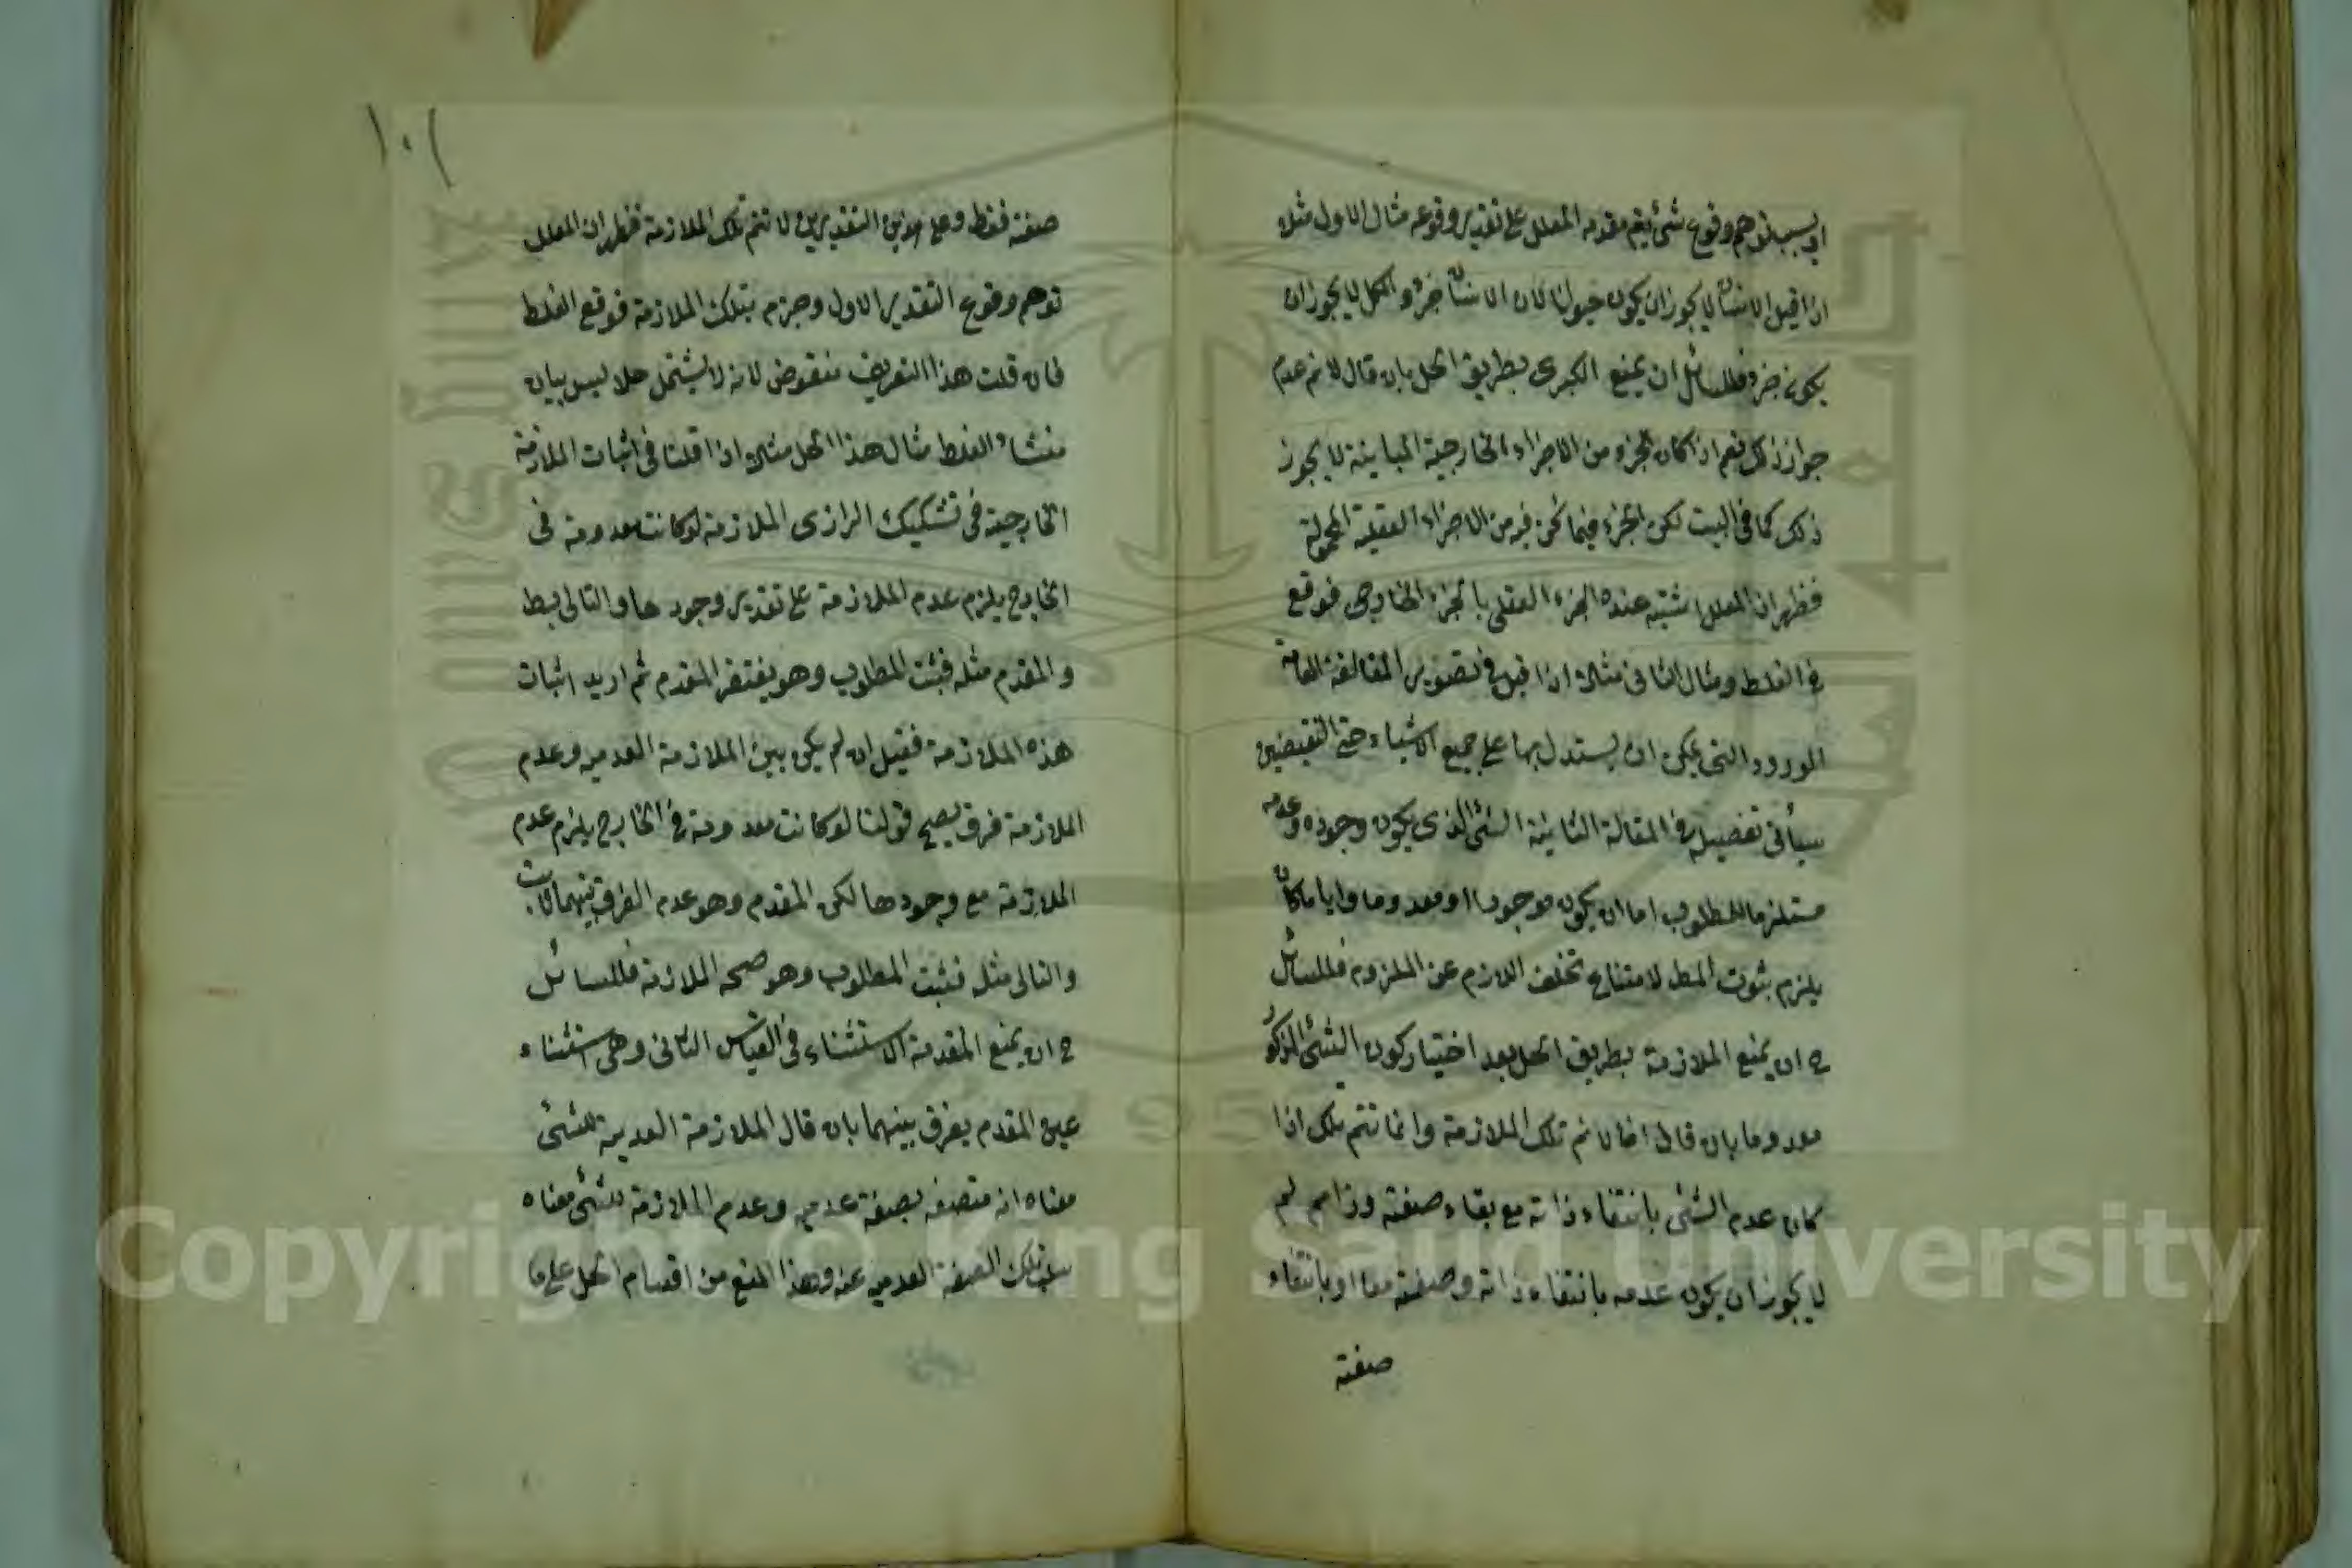 او بسبب توهم وقوع شئ يتم مقدمه المعلل على تقدير وقوعه مثال الاول مثلا
اذا قيل الانسان لا يجوز ان يكون حيوانا لان الانسان جزؤه والكل لا يجوز ان
يكون جزء فللسائل ان يمنع الكبرى بطريق الحل بان قال لا نم عدم
جواز ذلك نعم اذا كان الجزء من الاجزاء الخارجية المباينة لا يجوز
ذلك كما في البيت لكن الجزء فيما نحن فيه من الاجزاء العقلية المحمولة
فظهر ان المعلل اشتبه عنده الجزء العقلى بالجزء الخارجى فوقع
في الغلط ومثال الثانى مثلا اذا قيل في تصوير المغالطة العامة
الورود التى يمكن ان يستدل بها على جميع الاشياء حتى النقيضين
سيأتى تفصيله في المقالة الثانية الشئ الذى يكون وجوده وعدمه
مستلزما للمطلوب اما ان يكون موجودا او معدوما وايا ما كان
يلزم ثبوت المط لامتناع تخلف اللازم عن الملزوم فللسائل
ح ان يمنع الملازمة بطريق الحل بعد اختيار كون الشئ المذكور
معدوما بان قال انا لا نم تلك الملازمة وانما تتم تلك اذا
كان عدم الشئ بانتفاء ذاته مع بقاء صفته وذا مم لم
لا يجوز ان يكون عدمه بانتفاء ذاته وصفته معا او بانتفاء
صفته
١٠١
صفته فقط وعلى هذين التقديرين لا تتم تلك الملازمة فظهر ان المعلل
توهم وقوع التقدير الاول وجزم بتلك الملازمة فوقع الغلط
فان قلت هذا التعريف منقوض لانه لا يشتمل حلا ليس ببيان
منشاء الغلط مثال هذا الحل مثلا اذا قلنا في اثبات الملازمة
الخارجية في تشكيك الرازى الملازمة لو كانت معدومة في
الخارج يلزم عدم الملازمة على تقدير وجودها والتالى بط
والمقدم مثله فثبت المطلوب وهو يفتقر المقدم ثم اريد اثبات
هذه الملازمة فقيل ان لم يكن بين الملازمة العدمية وعدم
الملازمة فرق يصح قولنا لو كانت معدومة في الخارج يلزم عدم
الملازمة مع وجودها لكن المقدم وهو عدم الفرق بينهما ثابت
والتالى مثله فثبت المطلوب وهو صحة الملازمة فللسائل
ح ان يمنع المقدمة الاستثناء في القياس الثانى وهى استثناء
عين المقدم يفرق بينهما بان قال الملازمة العدمية للشئ
معناه انه متصف بصفة عدمية وعدم الملازمة للشئ معناه
سلب تلك الصفة العدمية عنه وهذا المنع من اقسام الحل على ما
Copyright © King Saud University